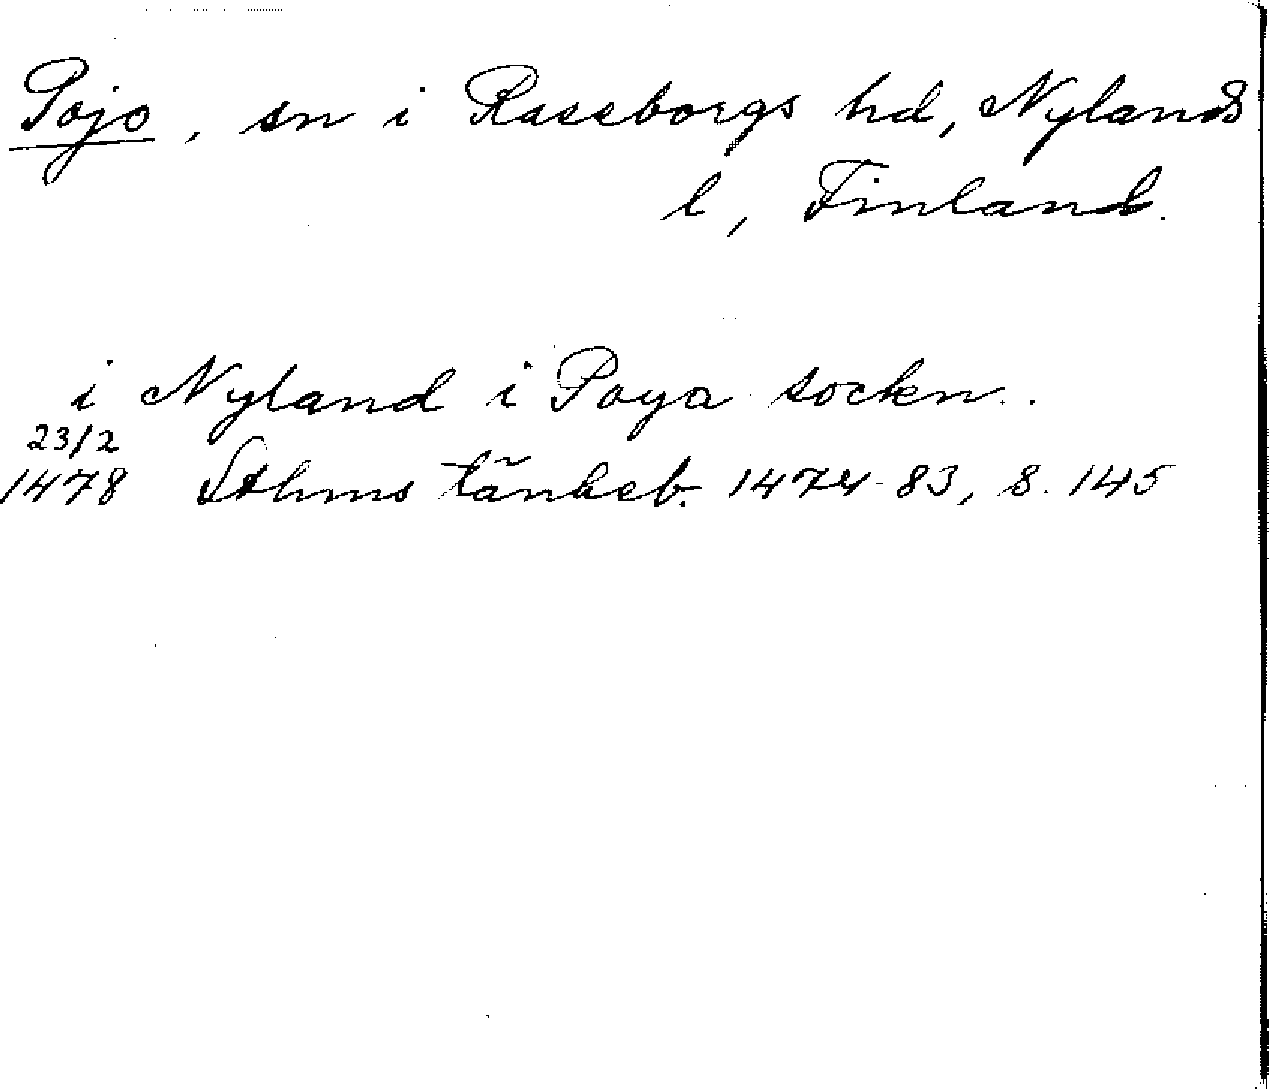 Pojo, sn i Raseborgs hd, Nylands
l, Finland.
i Nyland i Poya sockn..
23/2
1478 Sthms tänkeb. 1474-83, s. 145